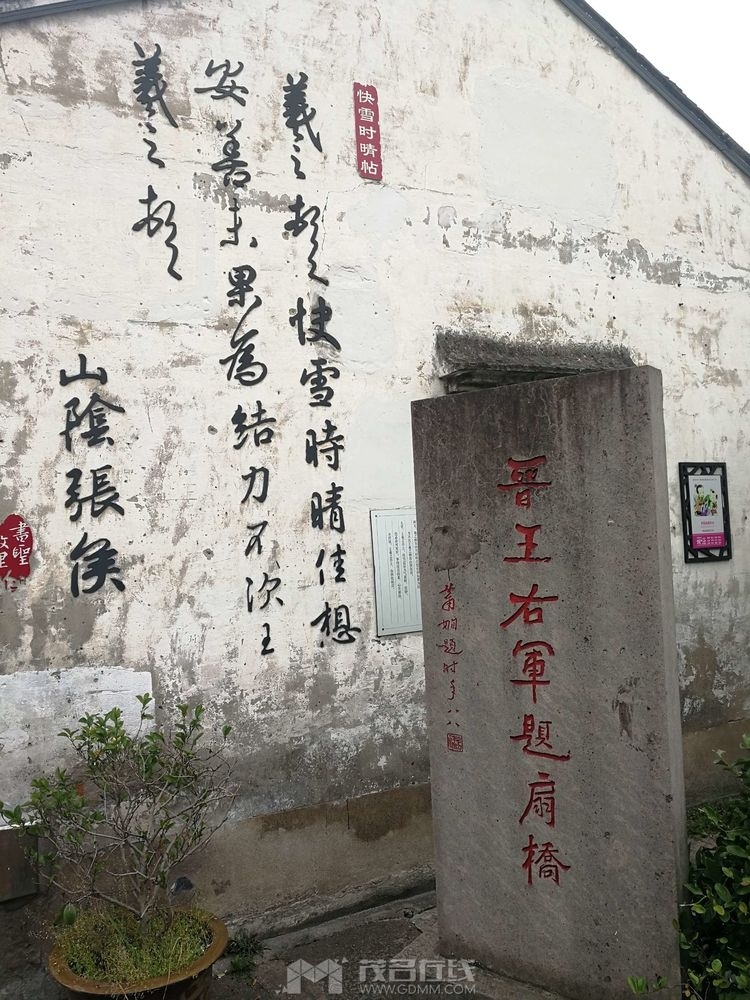 快雪时晴帖
羲之頓首快雪時晴佳想
安善未果為結力不次王
羲之頓首
山陰張侯
書聖
故里
晉王右軍題扇橋
蕭嫻題時年八八
茂名在线
WWW.GDMM.COM